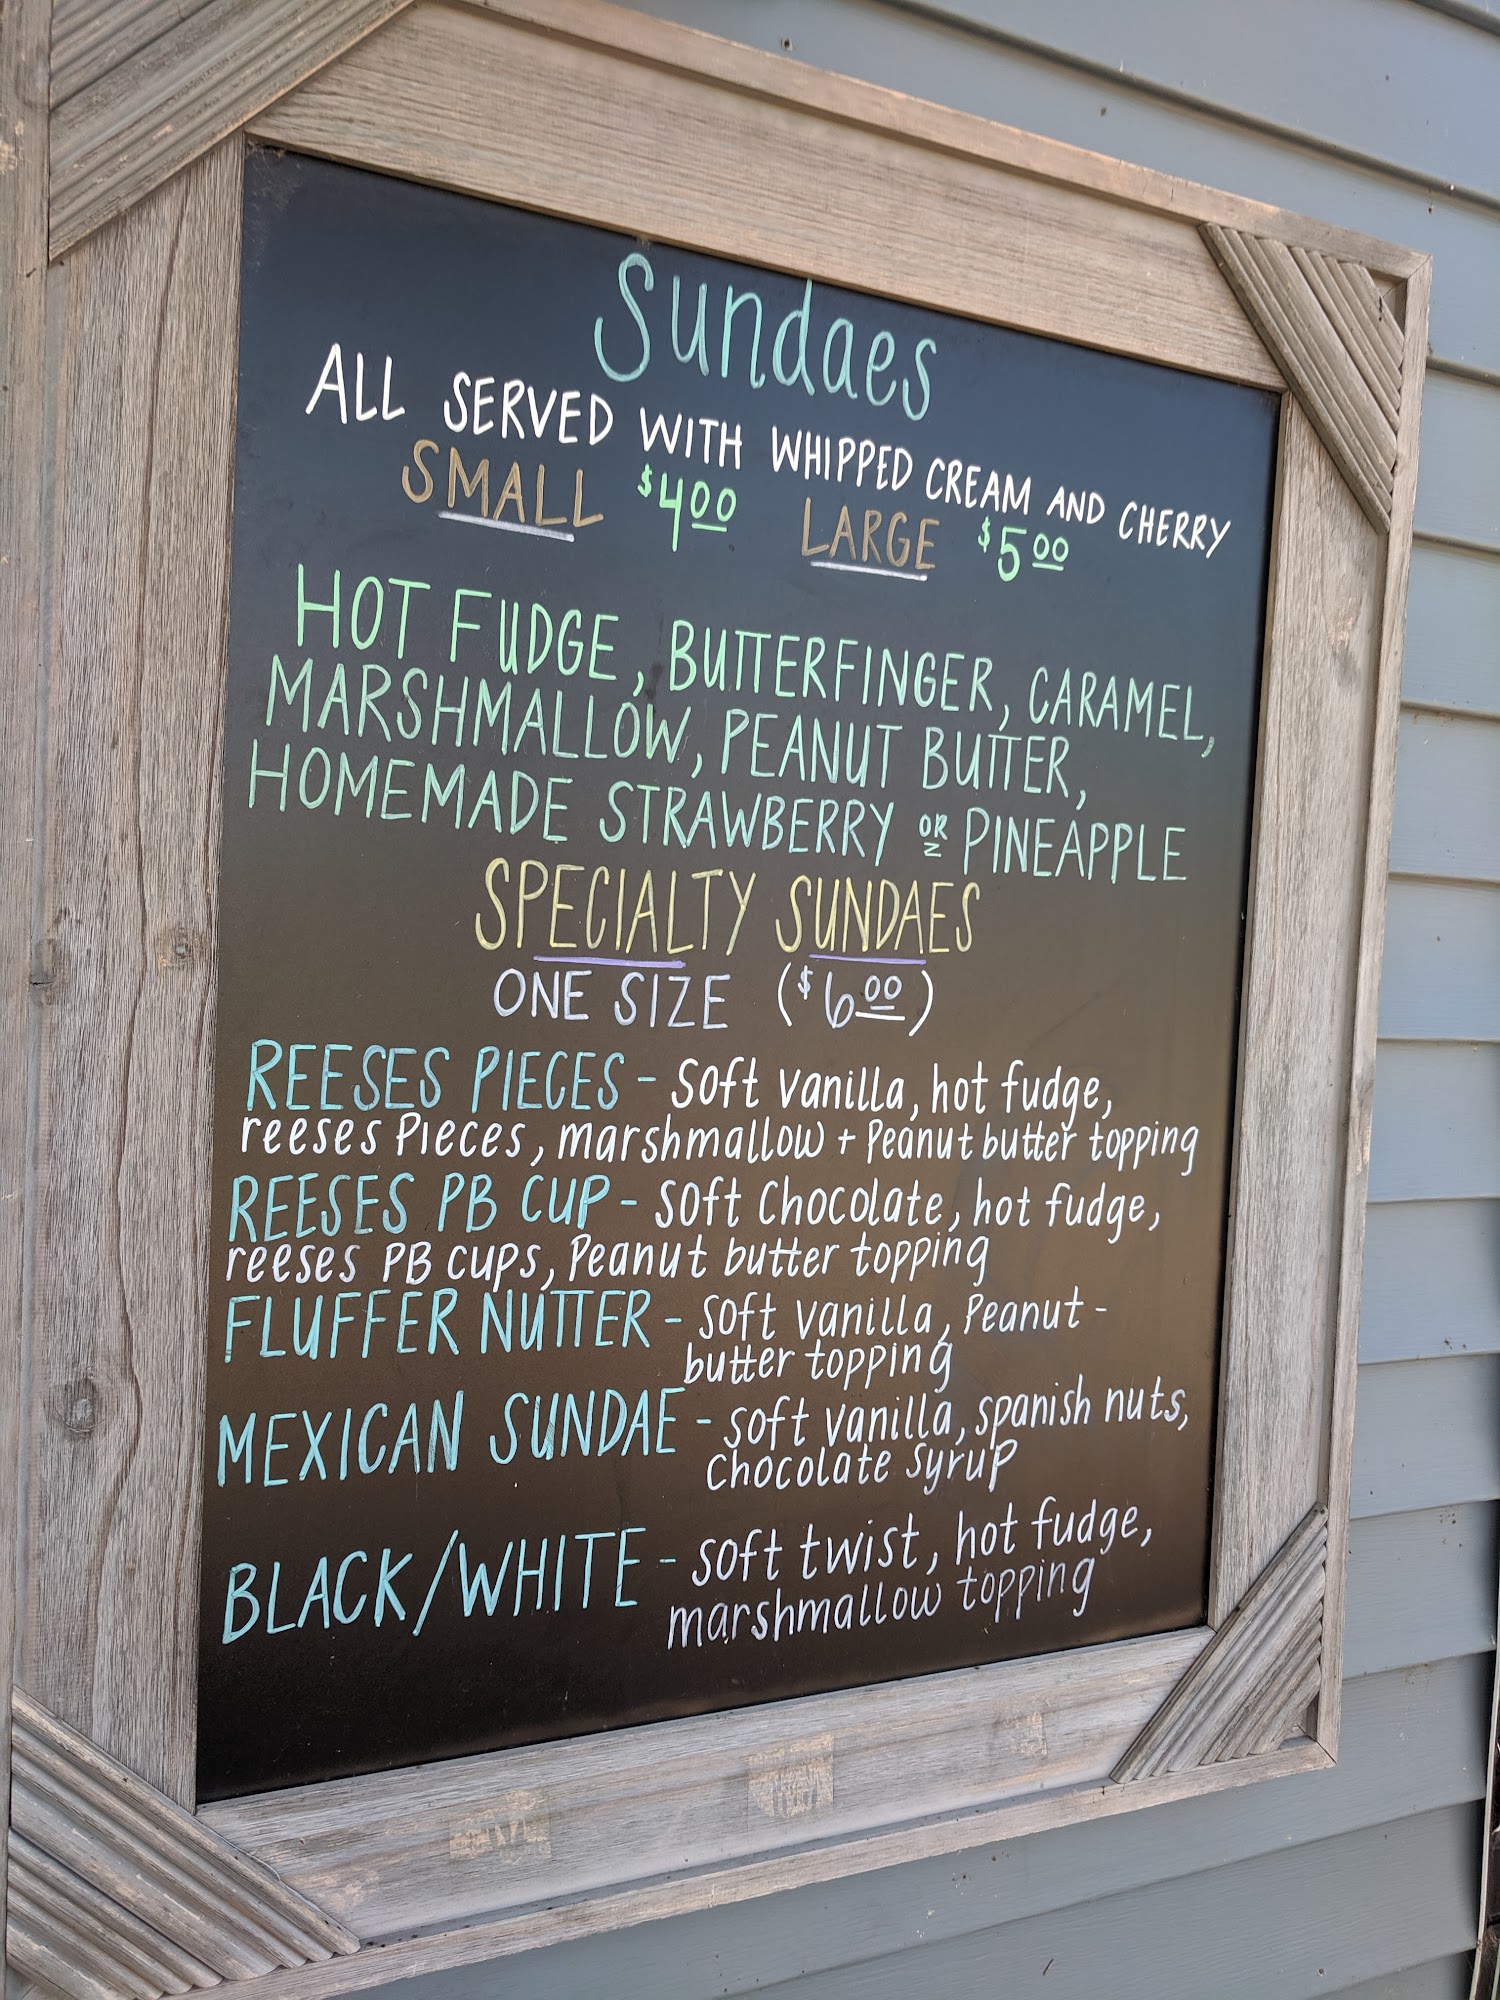 Sundaes
ALL SERVED WITH WHIPPED CREAM AND CHERRY
SMALL $4.00 LARGE $5.00
HOT FUDGE, BUTTERFINGER, CARAMEL,
MARSHMALLOW, PEANUT BUTTER,
HOMEMADE STRAWBERRY OR PINEAPPLE
SPECIALTY SUNDAES
ONE SIZE ($6.00)
REESES PIECES - soft vanilla, hot fudge,
reeses Pieces, marshmallow + Peanut butter topping
REESES PB CUP - soft chocolate, hot fudge,
reeses PB cups, Peanut butter topping
FLUFFER NUTTER - soft vanilla, Peanut -
butter topping
MEXICAN SUNDAE - soft vanilla, spanish nuts,
chocolate syrup
BLACK/WHITE - soft twist, hot fudge,
marshmallow topping